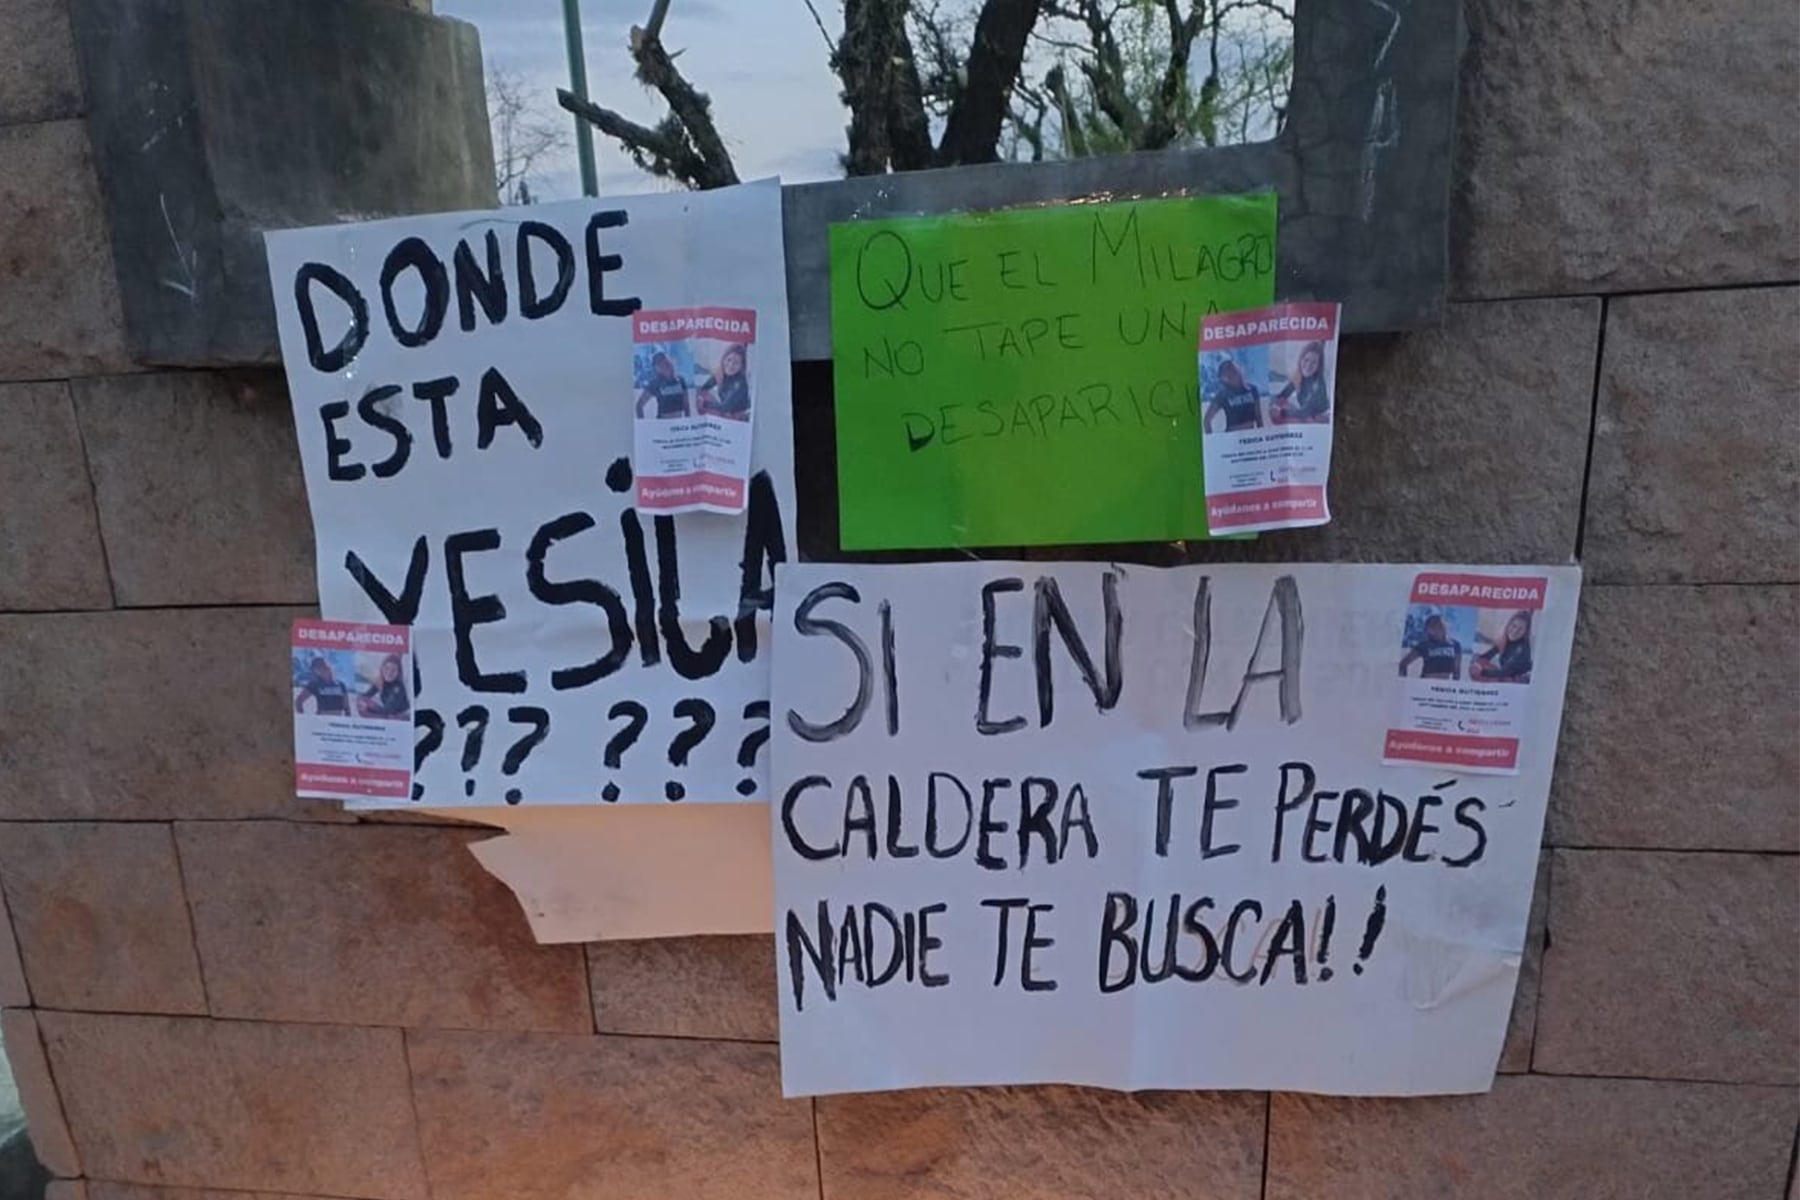 DONDE
ESTA
YESICA
??? ???
QUE EL MILAGRO
NO TAPE UNA
DESAPARICI
SI EN LA
CALDERA TE PERDÉS
NADIE TE BUSCA!!
DESAPARECIDA
Ayúdanos a compartir
DESAPARECIDA
YESICA GUTIERREZ
Ayúdanos a compartir
DESAPARECIDA
YESICA GUTIERREZ
Ayúdanos a compartir
DESAPARECIDA
YESICA GUTIERREZ
Ayúdanos a compartir